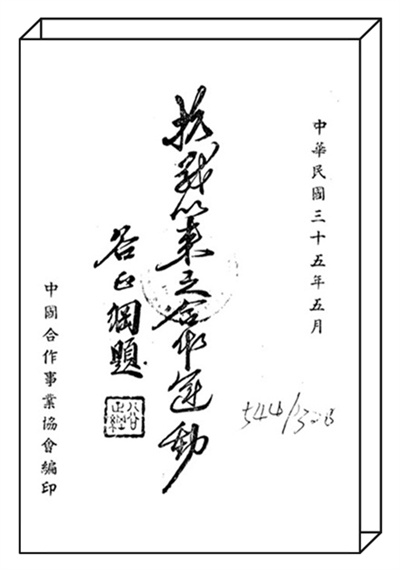 中華民國三十五年五月
抗戰以來之合作運動
谷正綱題
中國合作事業協會編印